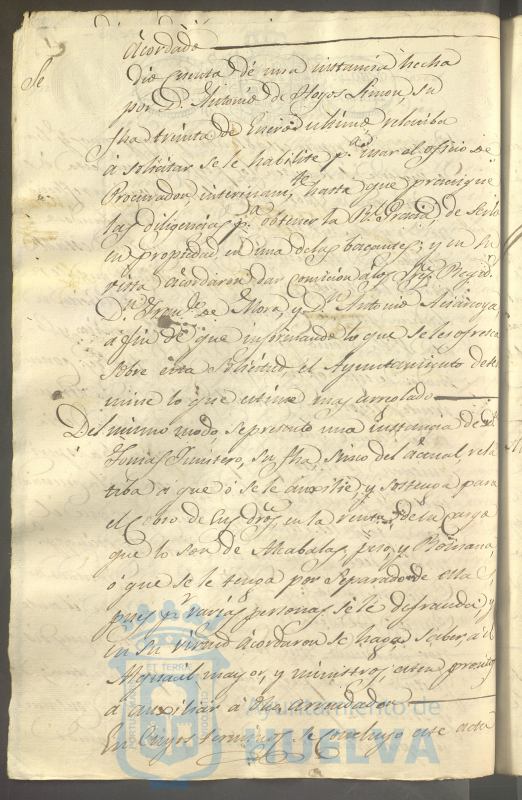 acordado
Se
dio cuenta de una instancia hecha
por Dn. Antonio de Hoyos Limon, su
fha treinta de Enero ultimo, relatiba
á solicitar se le habilite pa. usar el oficio de
Procurador interinamte. hasta que practique
las diligencias pa. obtener la Rl. Gracia de serlo
en propiedad en una de las bacantes, y en su
vista acordaron dar comicion á los Sres. Regid.
Dn. Franco. de Mora, y Dn. Antonio
á fin de que informando lo que se les ofresca
sobre esta solicitud, el Ayuntamiento deter
mine lo que estime mas arreglado
Del mismo modo, se presento una instancia de Dn.
Tomas Quintero, su fha, sinco del actual, rela
tiba á que ó se le auxilie, y sostenga para
el cobro de los dros. en la renta de su cargo
que lo son de Alcabalas, y
ó que se le tenga por separado de ella
pues pr. varias personas se le defrauda, y
en su virtud acordaron se haga saber á el
Alguacil mayor, y ministros, esten promtos
á auxiliar á dho arrendador
En cuyos terminos se concluyo este acto
ET TERRAE
PORTUS MARIS
CUSTODIA
Ayuntamiento de
HUELVA